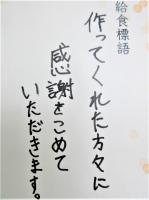 給食標語
作ってくれた方々に
感謝をこめて
いただきます。